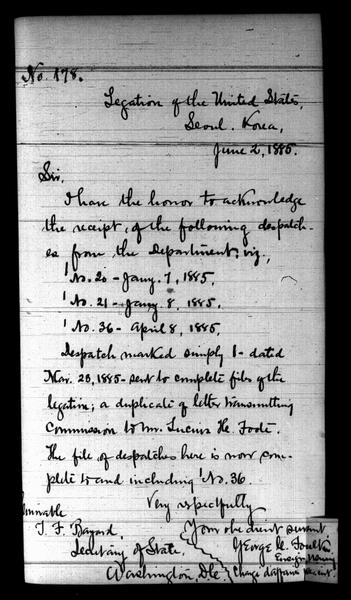 No. 178.
Legation of the United States,
Seoul, Korea,
June 2, 1885.
Sir,
I have the honor to acknowledge
the receipt, of the following despatch-
es from the Department, viz.,
No. 20 - Jany. 7, 1885,
No. 21 - Jany 8, 1885,
No. 36 - April 8, 1885,
Despatch marked simply 1 - dated
Mar. 25, 1885 - sent to complete files of the
legation; a duplicate of letter transmitting
commission to Mr. Lucius H. Foote.
The file of despatches here is now com-
plete to and including No. 36.
Very respectfully
Your obedient servant
T. F. Bayard,
George C. Foulk
Secretary of State,
Ensign U.S. Navy
Washington, D.C.
Chargé d'affaires